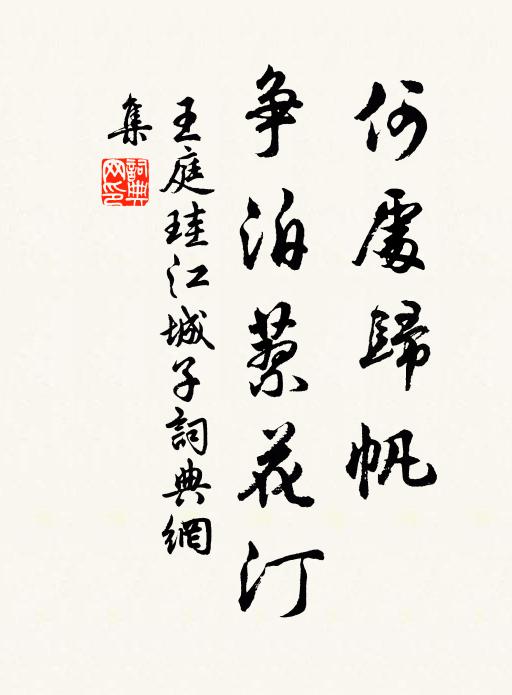 何處歸帆
争泊蓼花汀
王庭珪江城子詞典網
集
詞典
网印